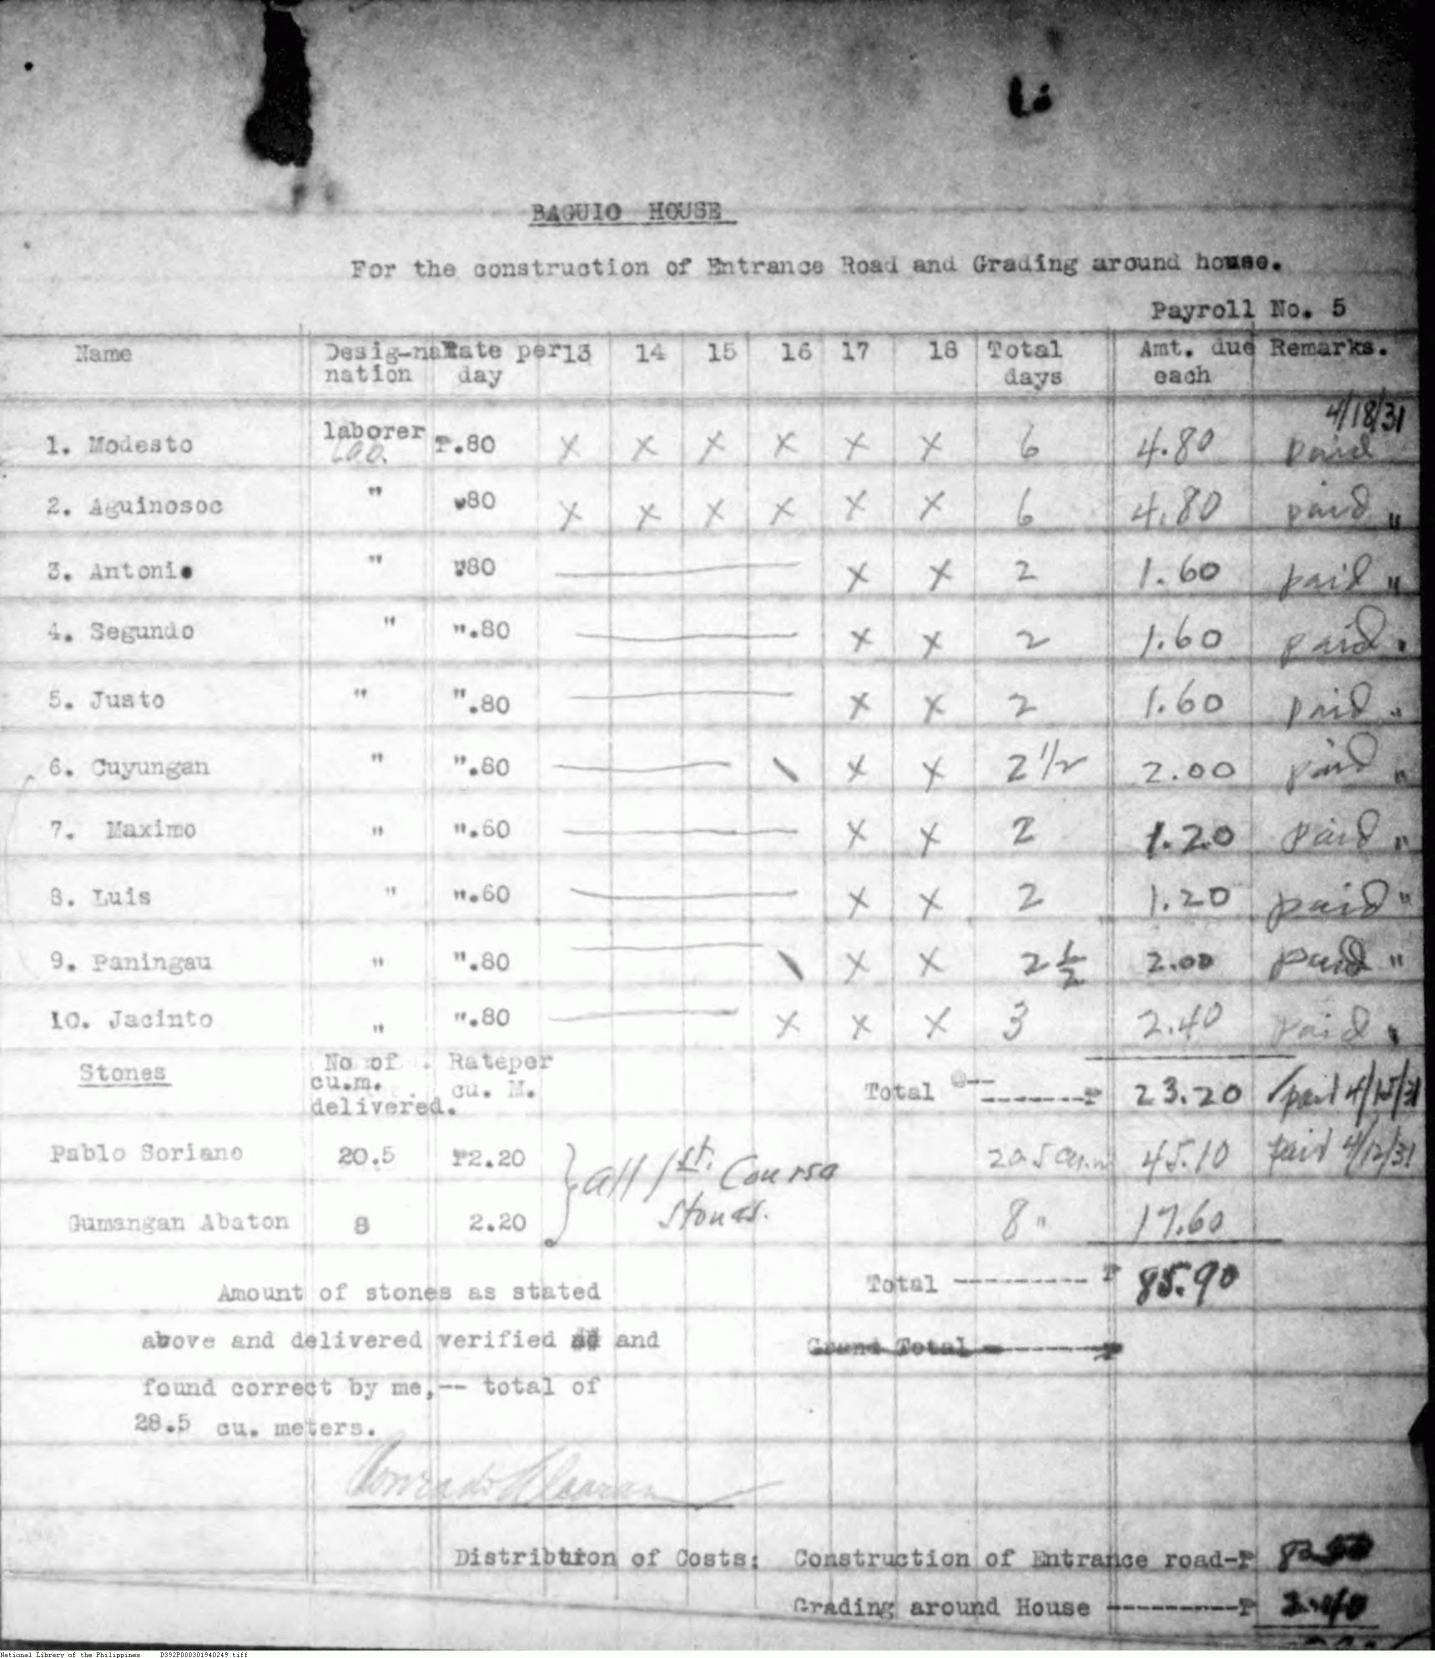 BAGUIO HOUSE
For the construction of Entrance Road and Grading around house.
Payroll No. 5
Name Desig-na Rate per 13 14 15 16 17 18 Total Amt. due Remarks.
nation day days each
4/18/31
1. Modesto laborer ₱.80 x x x x x x 6 4.80 paid
2. Aguinosoc " 80 x x x x x x 6 4.80 paid "
3. Antonio " 80 x x 2 1.60 paid "
4. Segundo " ".80 x x 2 1.60 paid "
5. Justo " ".80 x x 2 1.60 paid "
6. Cuyungan " ".80 \ x x 2 1/2 2.00 paid "
7. Maximo " ".60 x x 2 1.20 paid "
8. Luis " ".60 x x 2 1.20 paid "
9. Paningau " ".80 \ x x 2 1/2 2.00 paid "
10. Jacinto " ".80 x x x 3 2.40 paid "
Stones No of Rateper
cu.m. cu. M. Total -------₱ 23.20 paid 4/15/31
delivered.
Pablo Soriano 20.5 ₱2.20 } all 1st. Course 20.5 cu.m 45.10 paid 4/12/31
Gumangan Abaton 8 2.20 stones. 8 " 17.60
Total ---------- ₱ 85.90
Amount of stones as stated
above and delivered verified and
Grand Total ---------₱
found correct by me,-- total of
28.5 cu. meters.
Distribution of Costs: Construction of Entrance road-₱
Grading around House ----------₱
National Library of the Philippines D392P000301940249.tiff